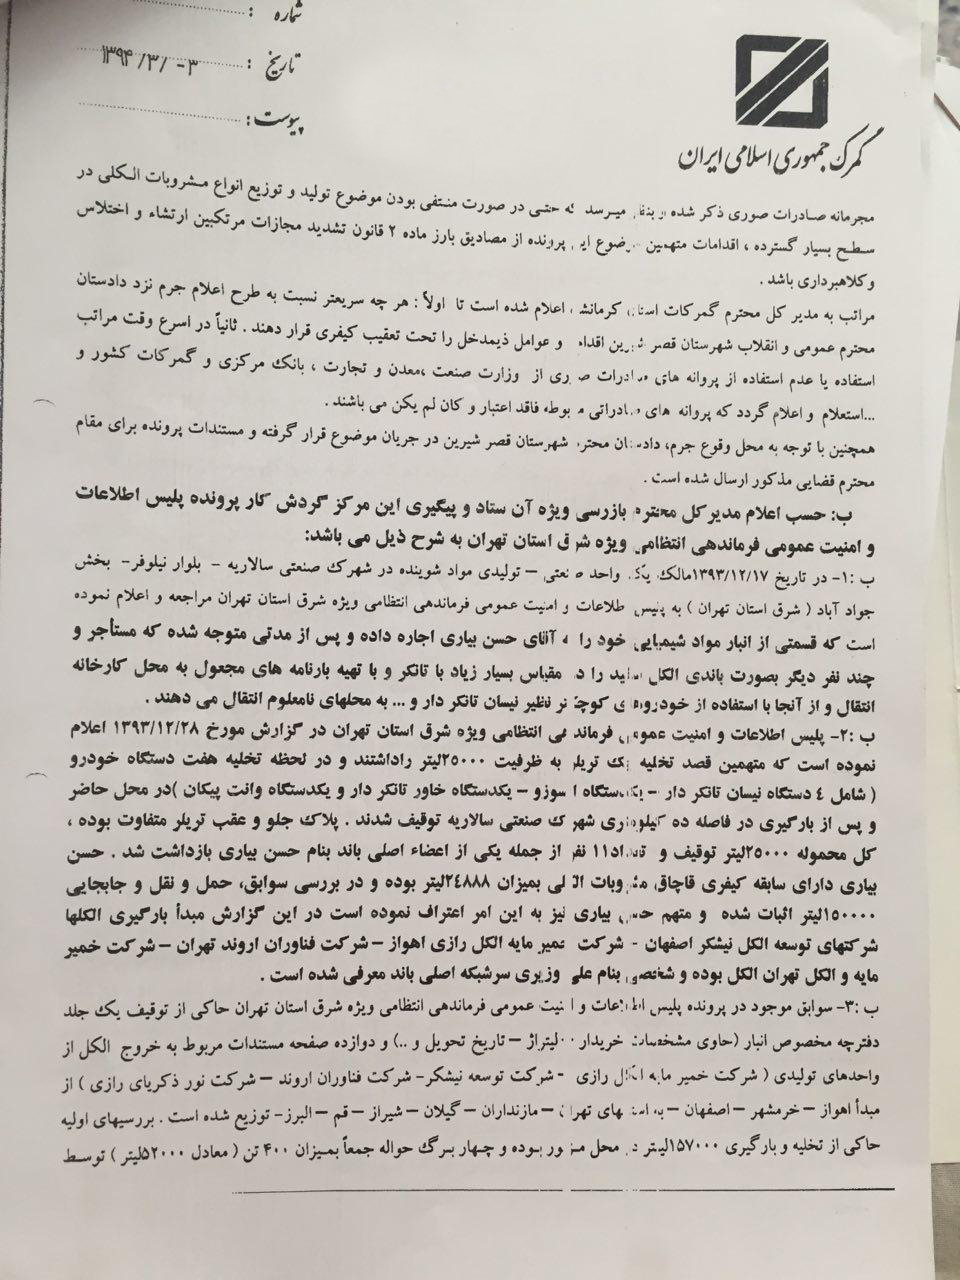 شماره :
تاریخ : ۱۳۹۴/۳/-۳
پیوست :
گمرک جمهوری اسلامی ایران
مجرمانه صادرات صوری ذکر شده و بنظر میرسد که حتی در صورت منتفی بودن موضوع تولید و توزیع انواع مشروبات الکلی در
سطح بسیار گسترده ، اقدامات متهمین موضوع این پرونده از مصادیق بارز ماده ۲ قانون تشدید مجازات مرتکبین ارتشاء و اختلاس
وکلاهبرداری باشد .
مراتب به مدیر کل محترم گمرکات استان کرمانشاه اعلام شده است تا اولاً : هر چه سریعتر نسبت به طرح اعلام جرم نزد دادستان
محترم عمومی و انقلاب شهرستان قصر شیرین اقدام و عوامل ذیمدخل را تحت تعقیب کیفری قرار دهند . ثانیاً در اسرع وقت مراتب
استفاده یا عدم استفاده از پروانه های صادرات صوری از وزارت صنعت ،معدن و تجارت ، بانک مرکزی و گمرکات کشور و
...استعلام و اعلام گردد که پروانه های صادراتی مربوطه فاقد اعتبار و کان لم یکن می باشند .
همچنین با توجه به محل وقوع جرم، دادستان محترم شهرستان قصر شیرین در جریان موضوع قرار گرفته و مستندات پرونده برای مقام
محترم قضایی مذکور ارسال شده است .
ب: حسب اعلام مدیرکل محترم بازرسی ویژه آن ستاد و پیگیری این مرکز گردش کار پرونده پلیس اطلاعات
و امنیت عمومی فرماندهی انتظامی ویژه شرق استان تهران به شرح ذیل می باشد:
ب :۱- در تاریخ ۱۳۹۳/۱۲/۱۷مالک یک واحد صنعتی – تولیدی مواد شوینده در شهرک صنعتی سالاریه - بلوار نیلوفر- بخش
جواد آباد ( شرق استان تهران ) به پلیس اطلاعات و امنیت عمومی فرماندهی انتظامی ویژه شرق استان تهران مراجعه و اعلام نموده
است که قسمتی از انبار مواد شیمیایی خود را به آقای حسن بیاری اجاره داده و پس از مدتی متوجه شده که مستأجر و
چند نفر دیگر بصورت باندی الکل سفید را در مقیاس بسیار زیاد با تانکر و با تهیه بارنامه های مجعول به محل کارخانه
انتقال و از آنجا با استفاده از خودروهای کوچکتر نظیر نیسان تانکر دار و ... به محلهای نامعلوم انتقال می دهند .
ب :۲- پلیس اطلاعات و امنیت عمومی فرماندهی انتظامی ویژه شرق استان تهران در گزارش مورخ ۱۳۹۳/۱۲/۲۸ اعلام
نموده است که متهمین قصد تخلیه یک تریلر به ظرفیت ۲۵۰۰۰لیتر راداشتند و در لحظه تخلیه هفت دستگاه خودرو
( شامل ٤ دستگاه نیسان تانکر دار – یکدستگاه ایسوزو – یکدستگاه خاور تانکر دار و یکدستگاه وانت پیکان )در محل حاضر
و پس از بارگیری در فاصله ده کیلومتری شهرک صنعتی سالاریه توقیف شدند . پلاک جلو و عقب تریلر متفاوت بوده ،
کل محموله ۲۵۰۰۰لیتر توقیف و تعداد۱۱ نفر از جمله یکی از اعضاء اصلی باند بنام حسن بیاری بازداشت شد . حسن
بیاری دارای سابقه کیفری قاچاق مشروبات الکلی بمیزان ۲٤۸۸۸لیتر بوده و در بررسی سوابق، حمل و نقل و جابجایی
۱۵۰۰۰۰لیتر اثبات شده و متهم حسن بیاری نیز به این امر اعتراف نموده است در این گزارش مبدأ بارگیری الکلها
شرکتهای توسعه الکل نیشکر اصفهان - شرکت خمیر مایه الکل رازی اهواز – شرکت فناوران اروند تهران – شرکت خمیر
مایه و الکل تهران الکل بوده و شخصی بنام علی وزیری سرشبکه اصلی باند معرفی شده است .
ب :۳- سوابق موجود در پرونده پلیس اطلاعات و امنیت عمومی فرماندهی انتظامی ویژه شرق استان تهران حاکی از توقیف یک جلد
دفترچه مخصوص انبار (حاوی مشخصات خریدار -لیتراژ – تاریخ تحویل و ..) و دوازده صفحه مستندات مربوط به خروج الکل از
واحدهای تولیدی ( شرکت خمیر مایه الکل رازی - شرکت توسعه نیشکر- شرکت فناوران اروند – شرکت نور ذکریای رازی ) از
مبدأ اهواز – خرمشهر – اصفهان – به استانهای تهران – مازنداران – گیلان – شیراز – قم – البرز- توزیع شده است . بررسیهای اولیه
حاکی از تخلیه و بارگیری ۱۵۷۰۰۰لیتر در محل مزبور بوده و چهار برگ حواله جمعاً بمیزان ۴۰۰ تن ( معادل ۵۲۰۰۰لیتر ) توسط